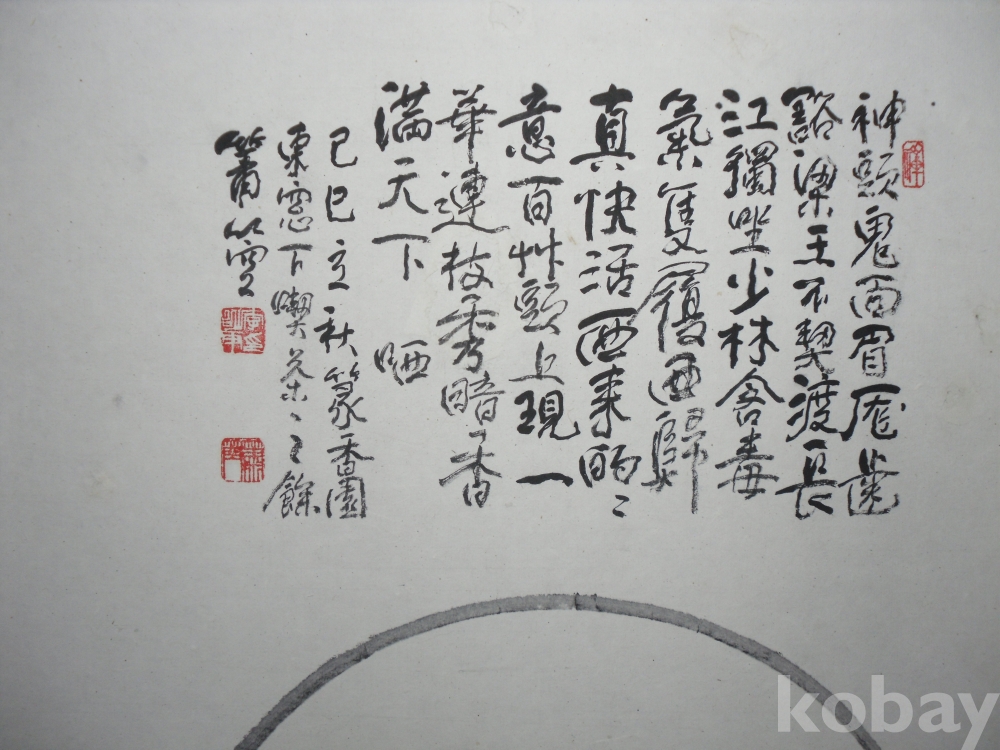 神頭鬼面眉厖齒
豁梁王不契渡長
江獨坐少林含毒
氣隻履西歸
真快活西來的〻
意百艸頭上現一
華連枝秀暗香
滿天下 哂
己巳立秋篆香園
東窓下喫茶〻之餘
kobay